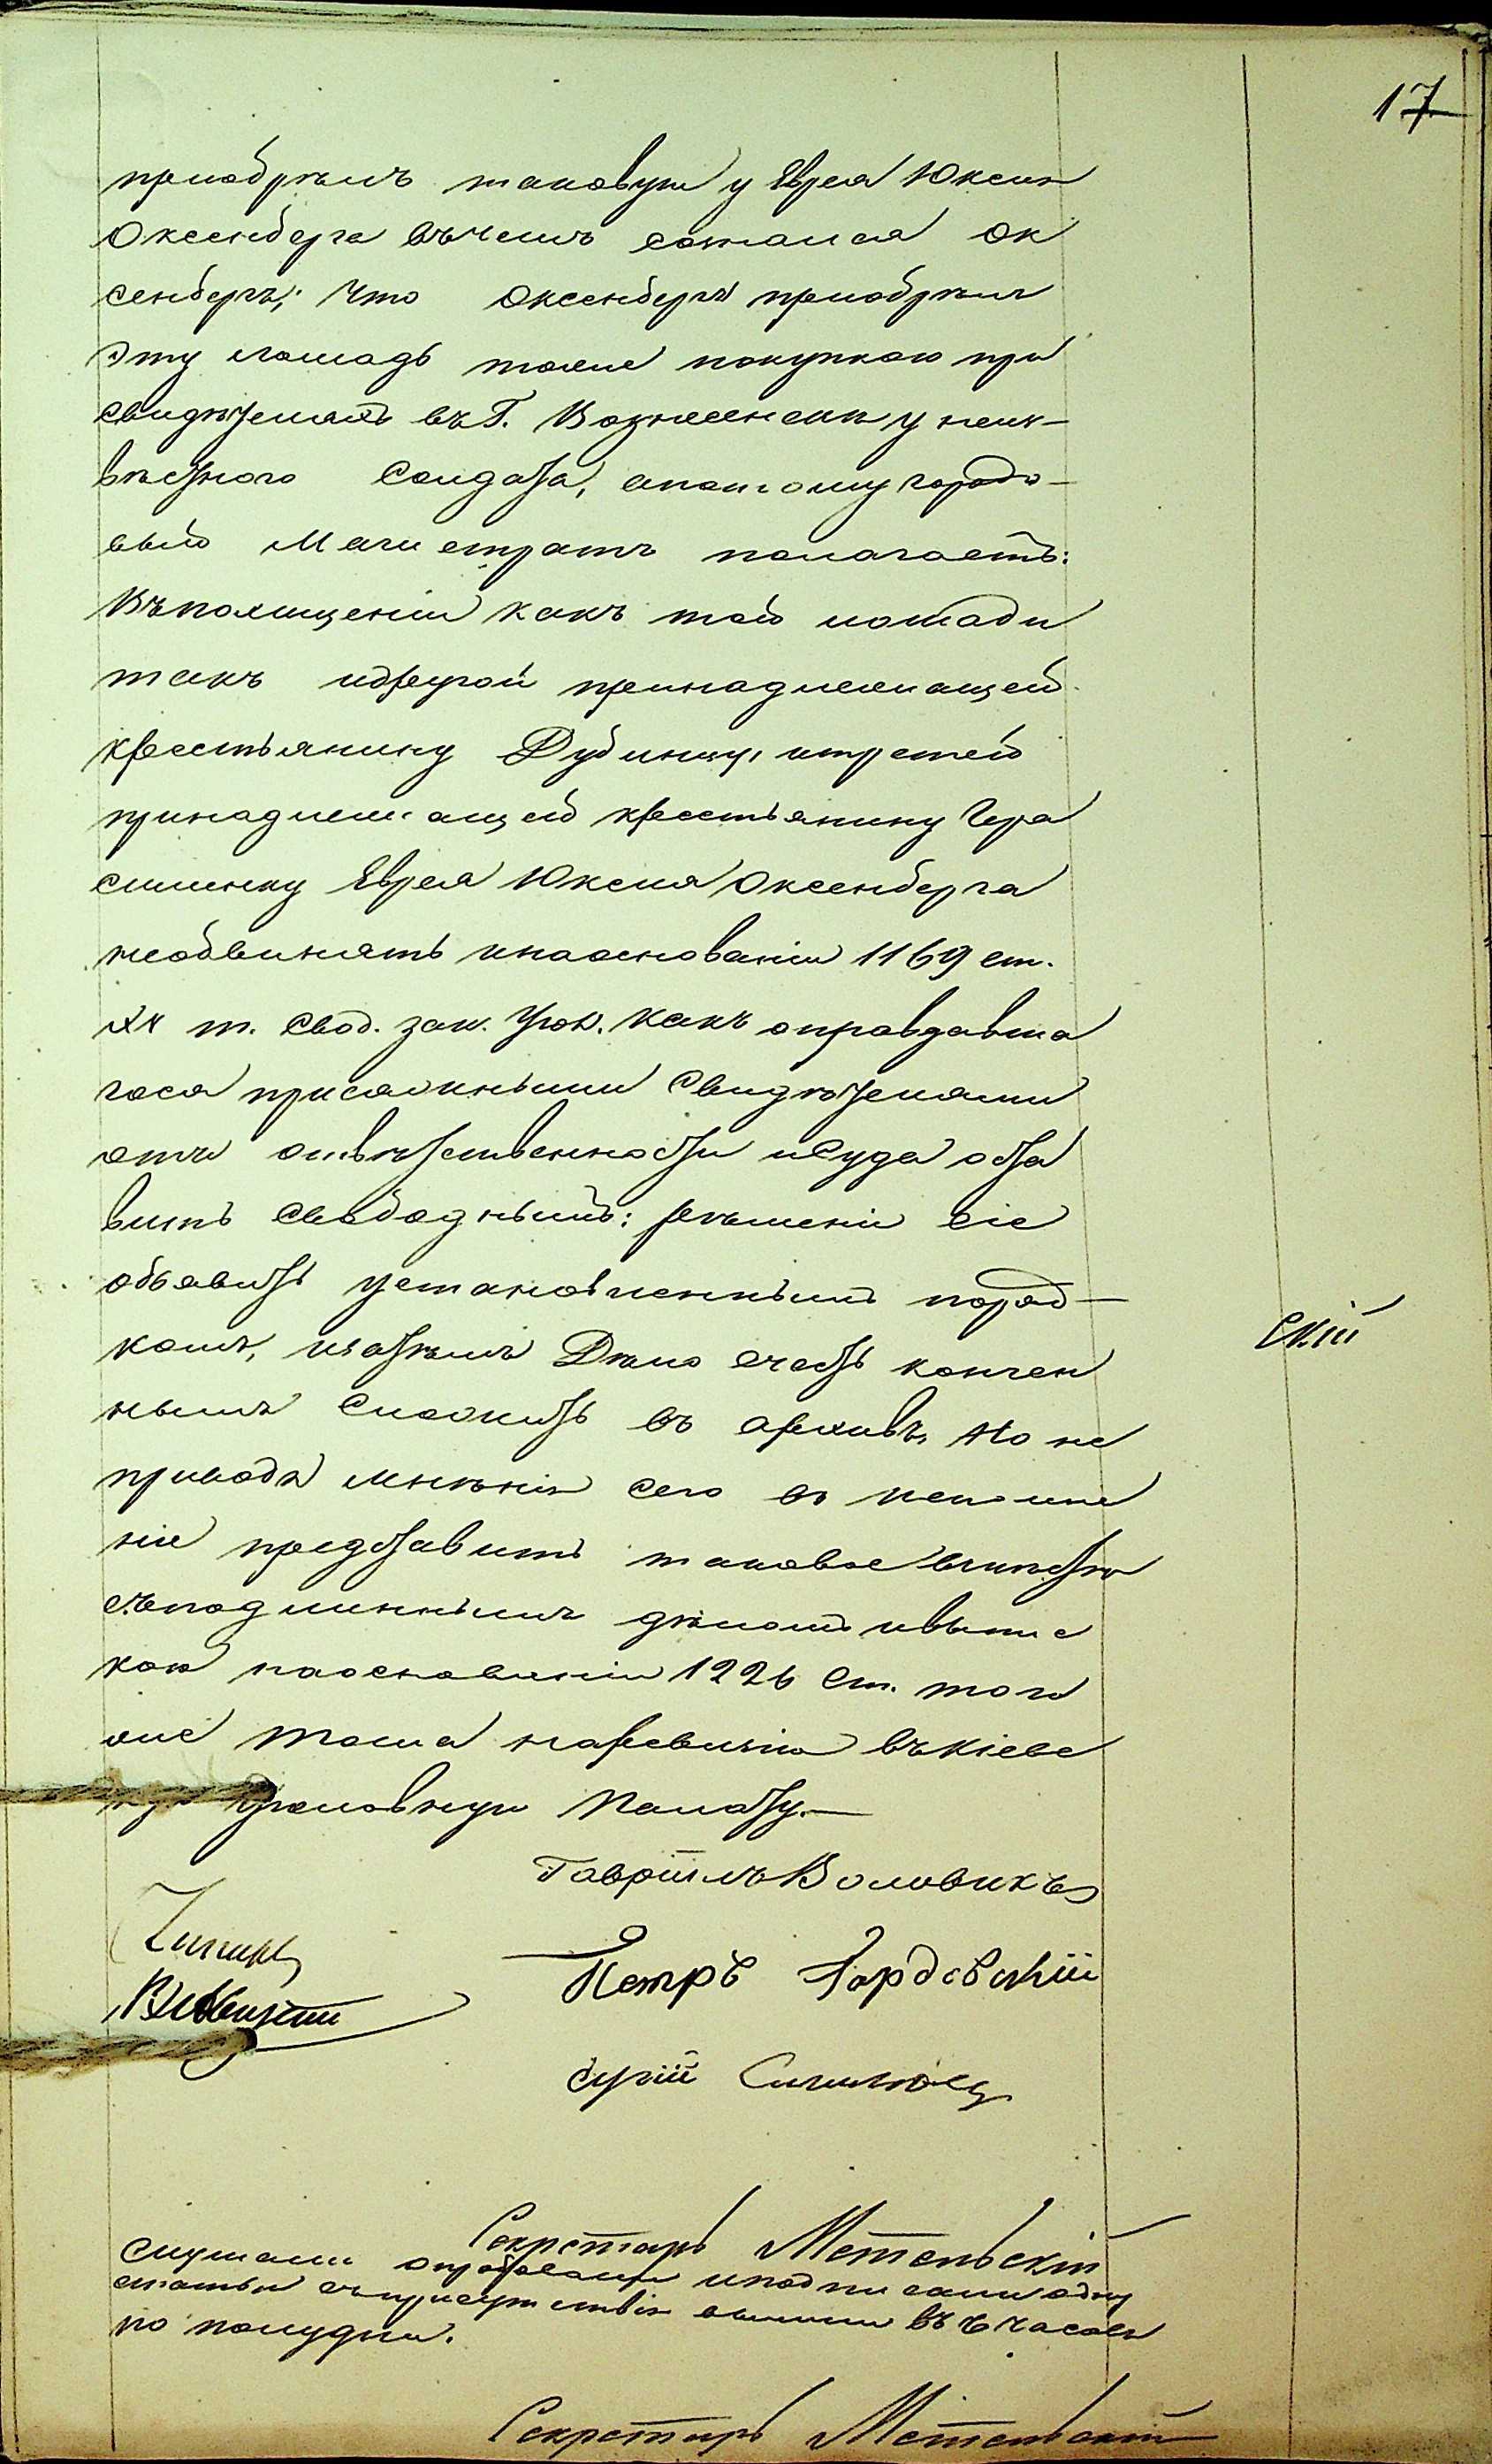 17
пріобрѣлъ таковую у Еврея Юкеля
Оксенберга въ чемъ сознался Ок
сенбергъ; что Оксенбергъ пріобрѣлъ
эту лошадь тоже покупкою при
свидѣтеляхъ въ Г. Вознесенскѣ у неиз-
вѣстного Солдата, апотому городо-
вый Магистратъ полагаетъ:
Въпохищеніи какъ той лошади
такъ идругой принадлежащей
крестьянину Дубинцу, итретей
принадлежащей крестьянину Гера
сименку Еврея Юкеля Оксенберга
необвинять инаоснованіи 1169 ст.
XV т. Свод. зак. Угол. какъ оправдавша
гося присяжными Свидѣтелями
отъ отвѣтственности иСуда оста
вить Свободнымъ: рѣшеніе сіе
объявить установленнымъ поряд-
комъ, изатѣмъ Дѣло счесть кончен
нымъ Сложить въ архивъ, Но не
приводя мнѣнія сего въ исполне
ніе представить таковое вмѣстѣ
съподлиннымъ дѣломъ ивыпис
кою наоснованіи 1226 Ст. того
же тома наревизію въКіевс
кую Уголовную Палату.—
Гавріилъ Воловикъ
Петръ Гордовскій
скій
Секретарь Метельскій
Слушали и подписали одну
статью въприсутствіи были въ 6 часовъ
по полудни.
Секретарь Метельскій